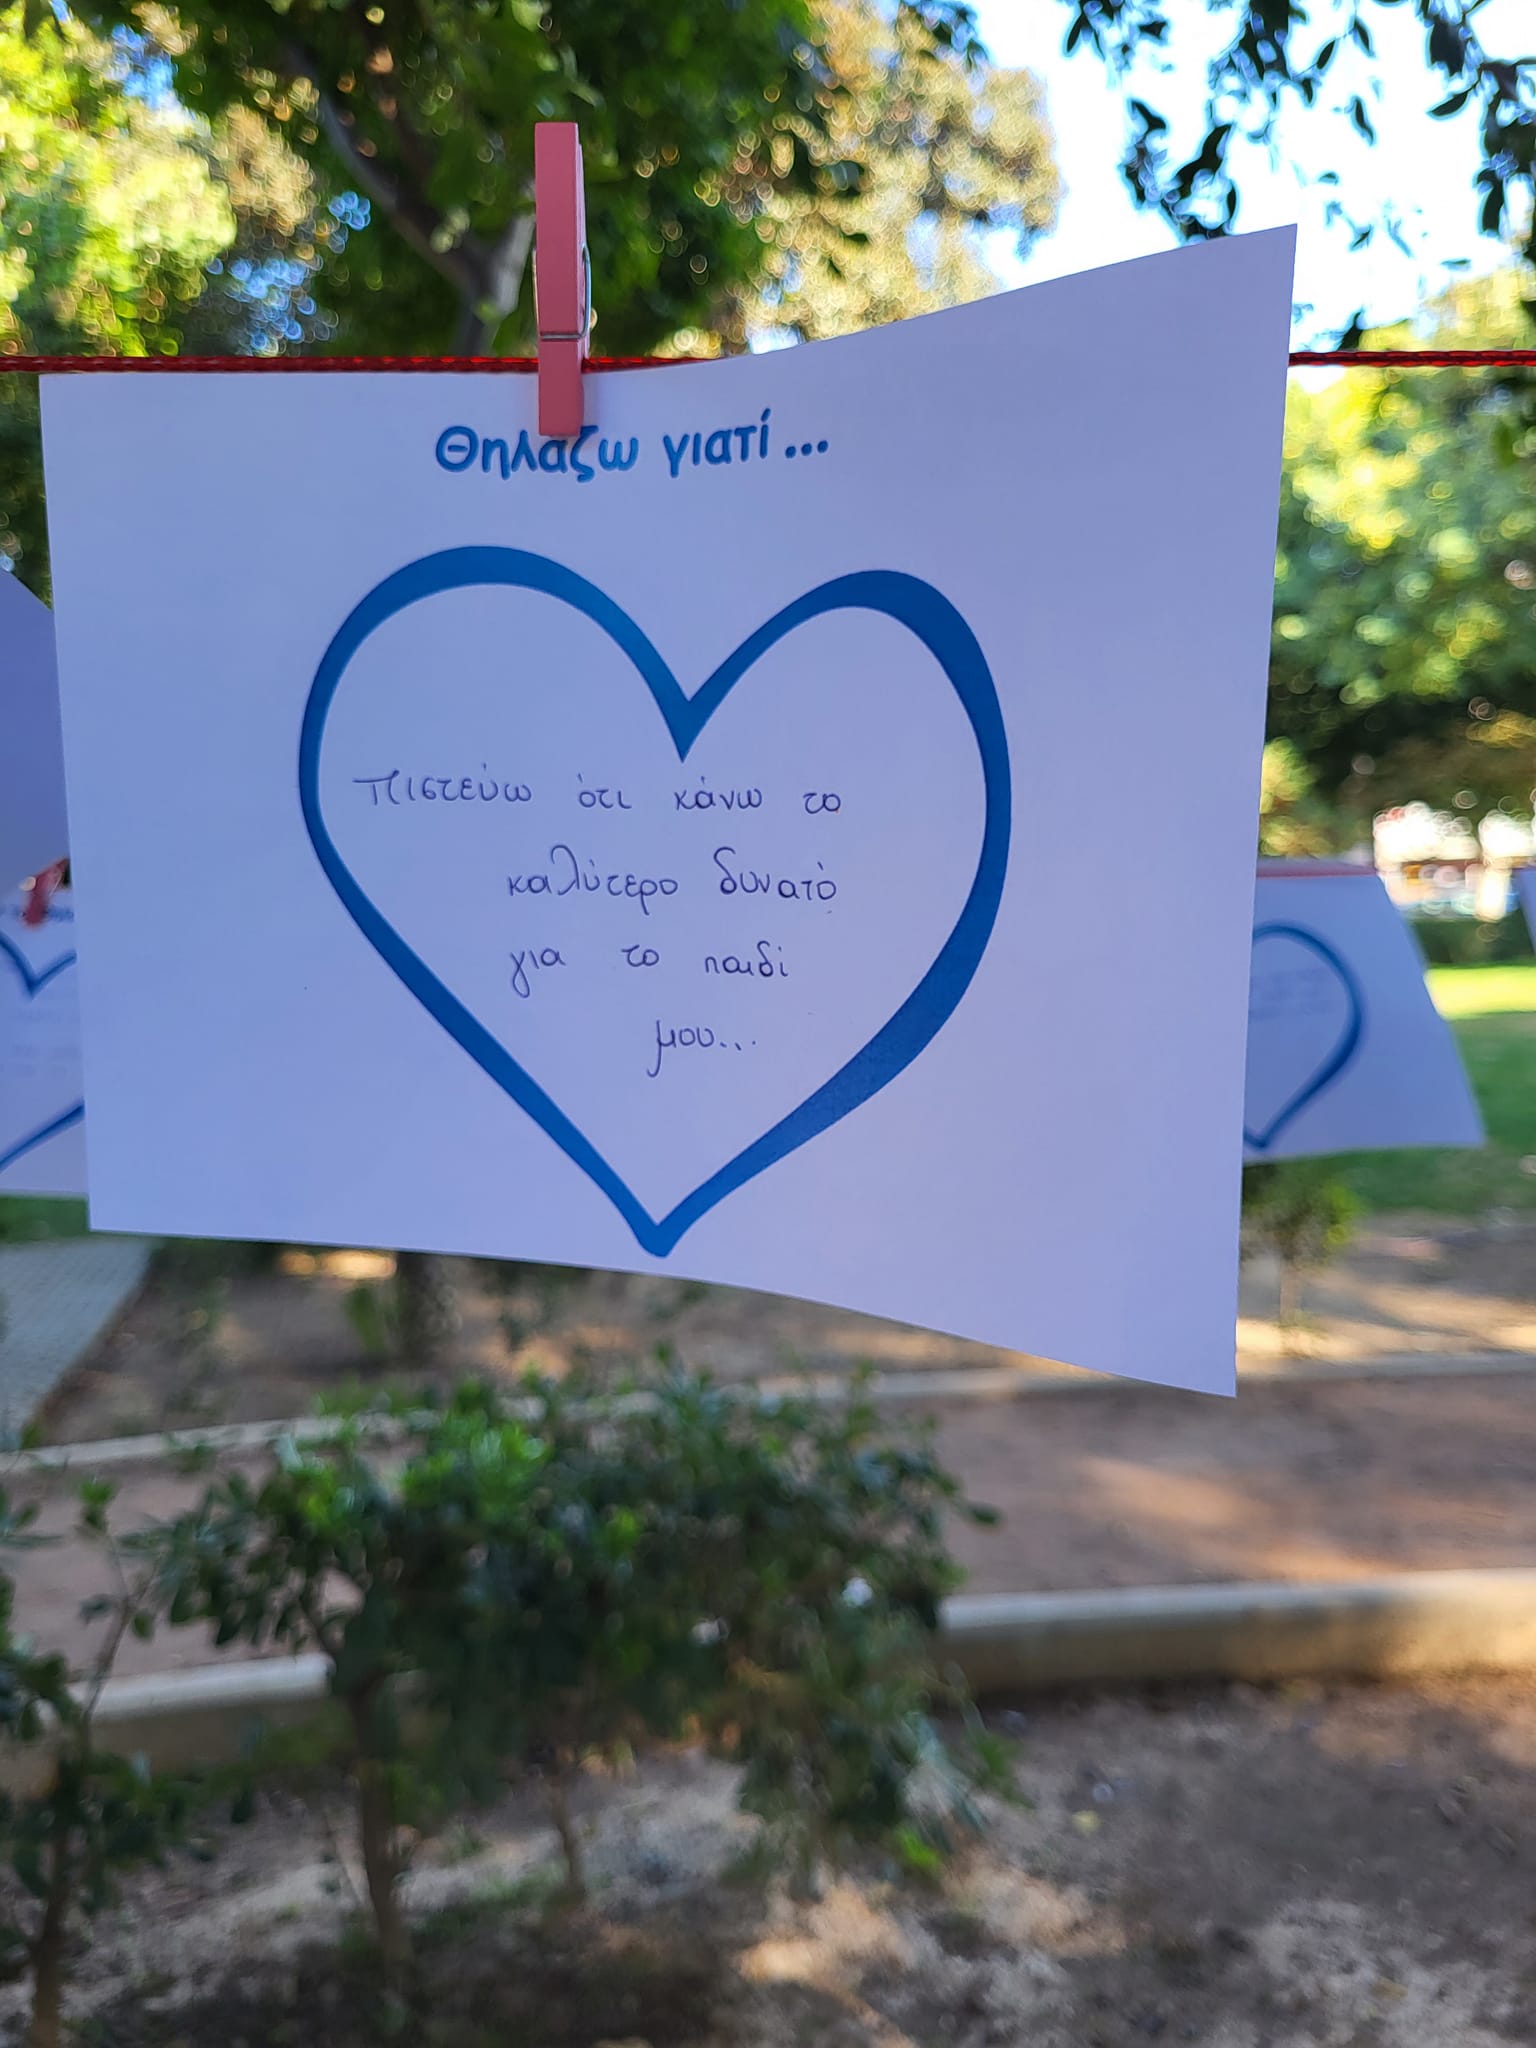 Θηλάζω γιατί...
Πιστεύω ότι κάνω το
καλύτερο δυνατό
για το παιδί
μου...